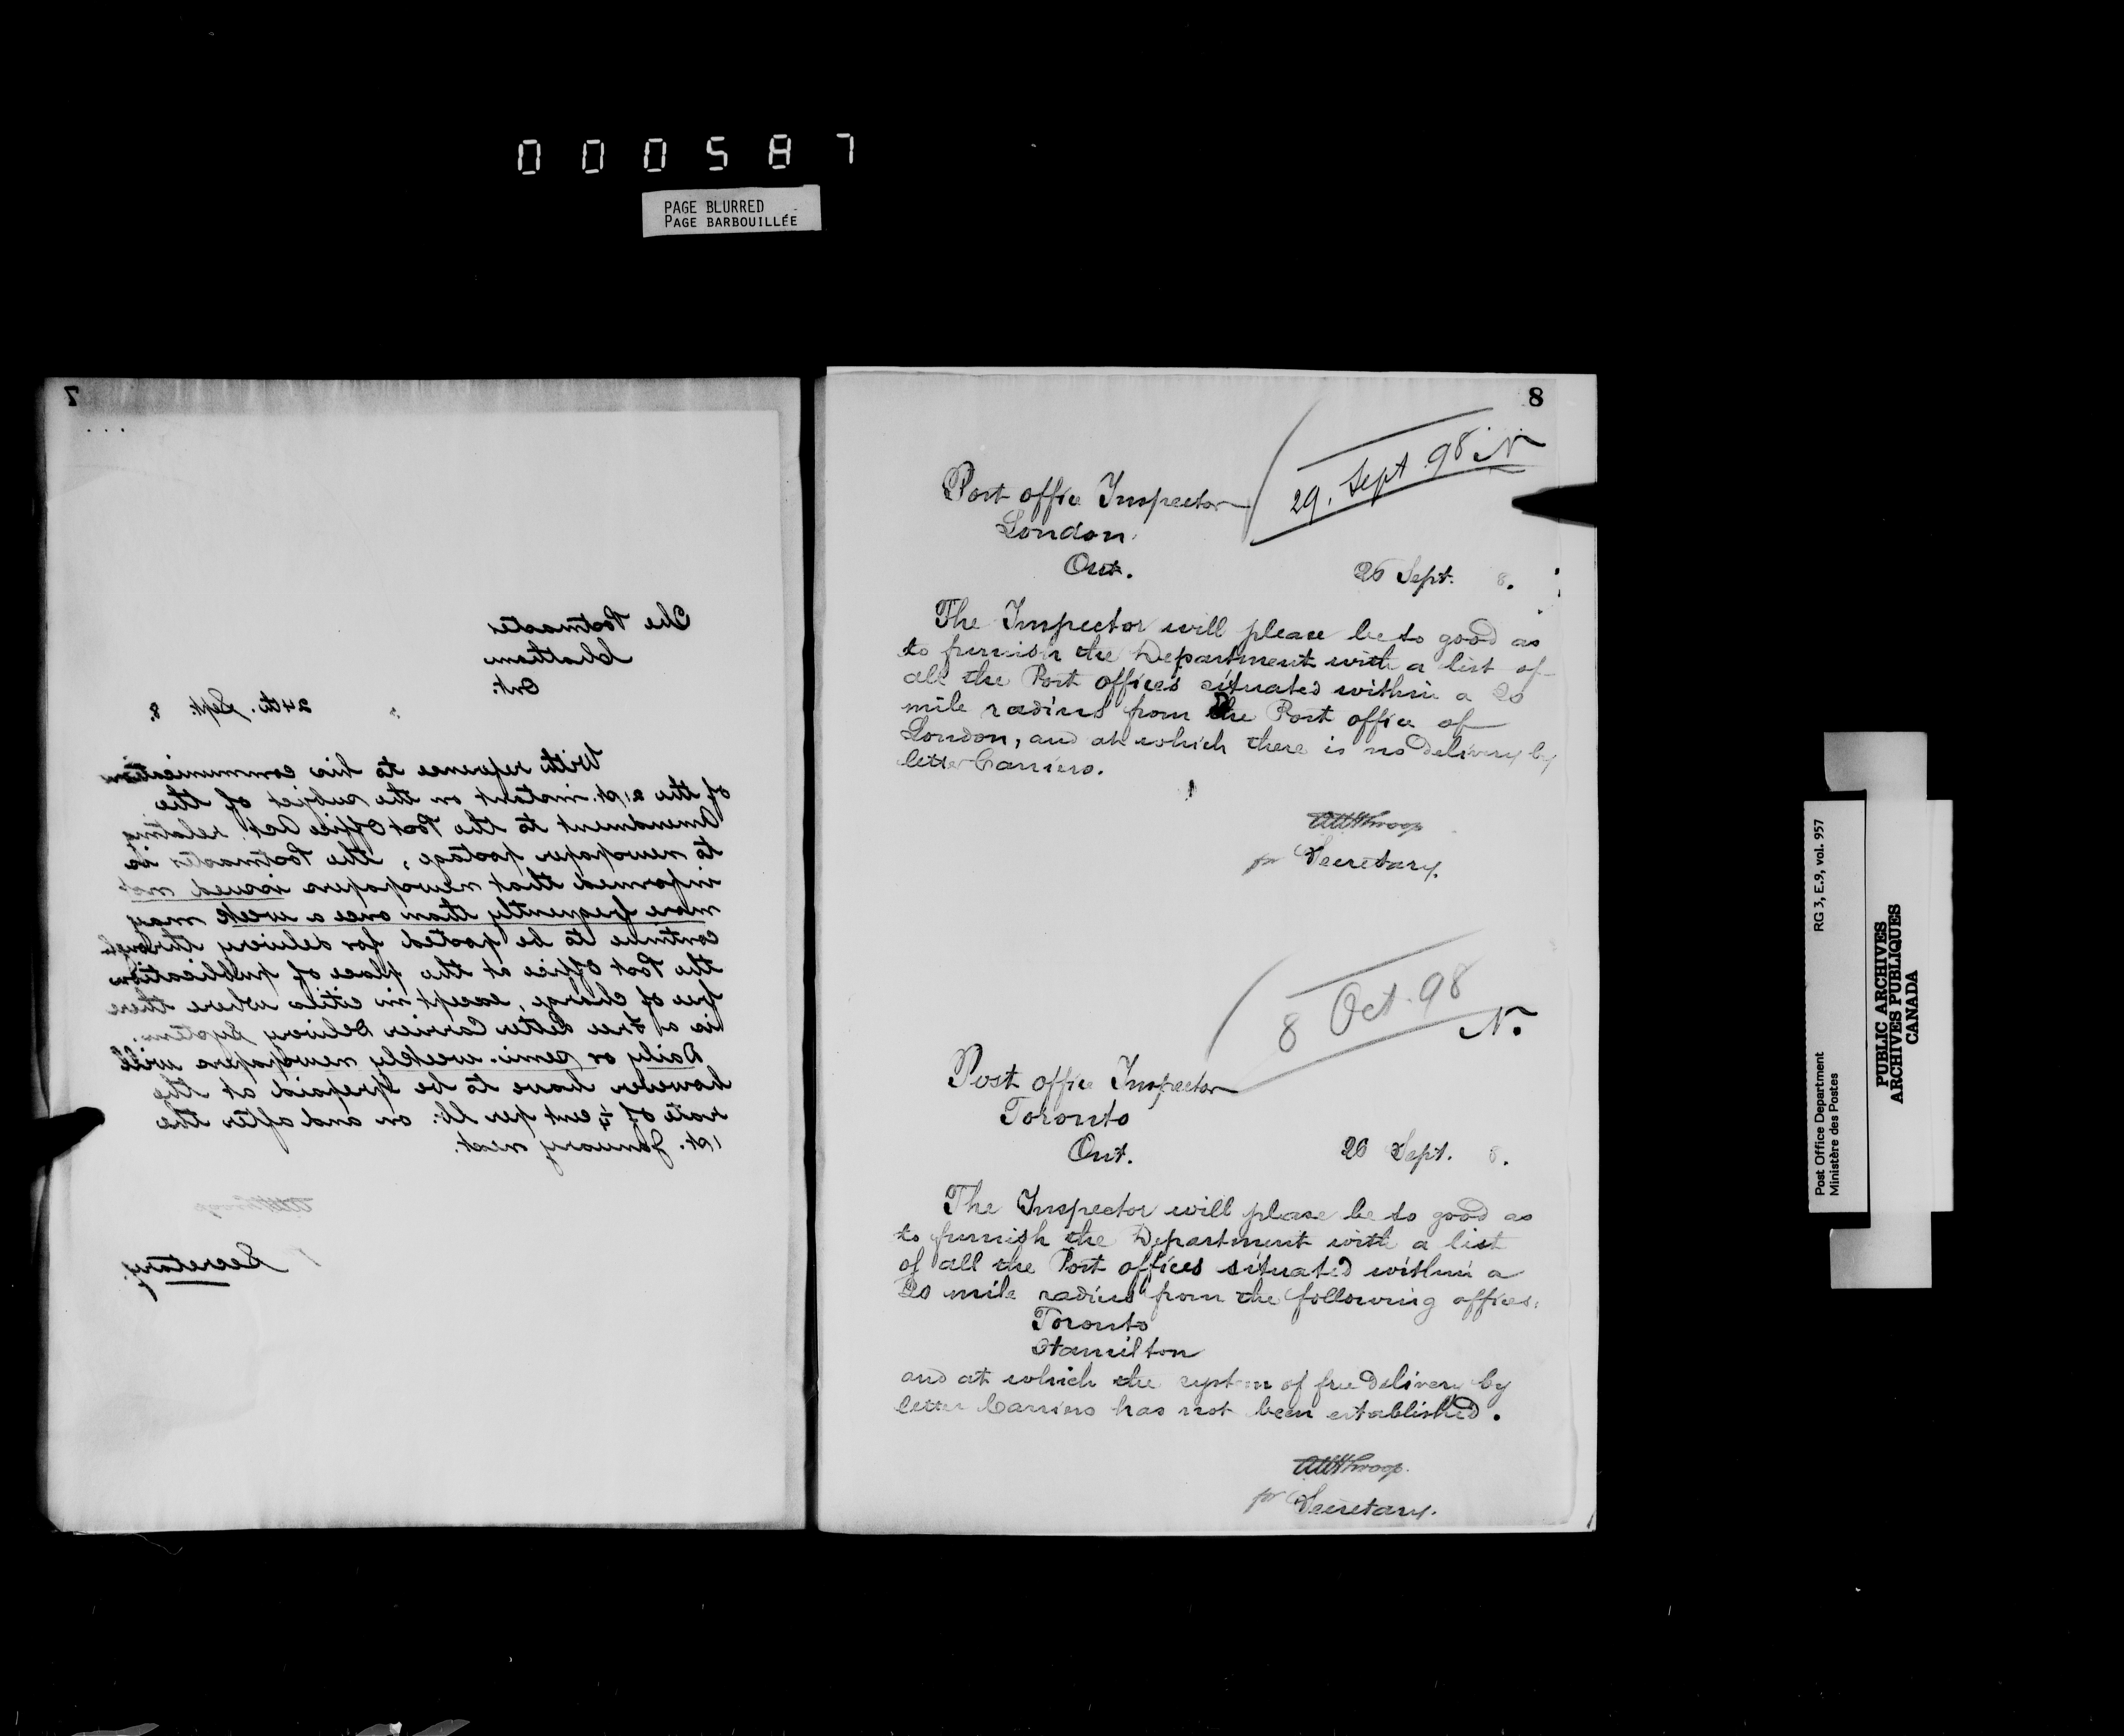 000587
PAGE BLURRED
PAGE BARBOUILLÉE
7
The Postmaster
Chatham
Ont.
24th. Sept. 8.
With reference to his communication
of the 21st. instant on the subject of the
Amendment to the Post Office Act relating
to newspaper postage, the Postmaster is
informed that newspapers issued not
more frequently than once a week may
continue to be posted for delivery through
the Post Office at the place of publication
free of charge, except in cities where there
is a Free Letter Carrier Delivery System.
Daily or semi-weekly newspapers will
however have to be prepaid at the
rate of ¼ cent per lb. on and after the
1st. January next.
Secretary.
8
29. Sept 98 N
Post office Inspector
London
Ont.
26 Sept. 8.
The Inspector will please be so good as
to furnish the Department with a list of
all the Post offices situated within a 20
mile radius from the Post office of
London, and at which there is no delivery by
letter Carriers.
AWThroop
for Secretary.
8 Oct. 98
N.
Post office Inspector
Toronto
Ont.
26 Sept. 8.
The Inspector will please be so good as
to furnish the Department with a list
of all the Post offices situated within a
20 mile radius from the following offices:
Toronto
Hamilton
and at which the system of free delivery by
letter Carriers has not been established.
AWThroop.
for Secretary.
Post Office Department RG 3, E.9, vol. 957
Ministère des Postes
PUBLIC ARCHIVES
ARCHIVES PUBLIQUES
CANADA